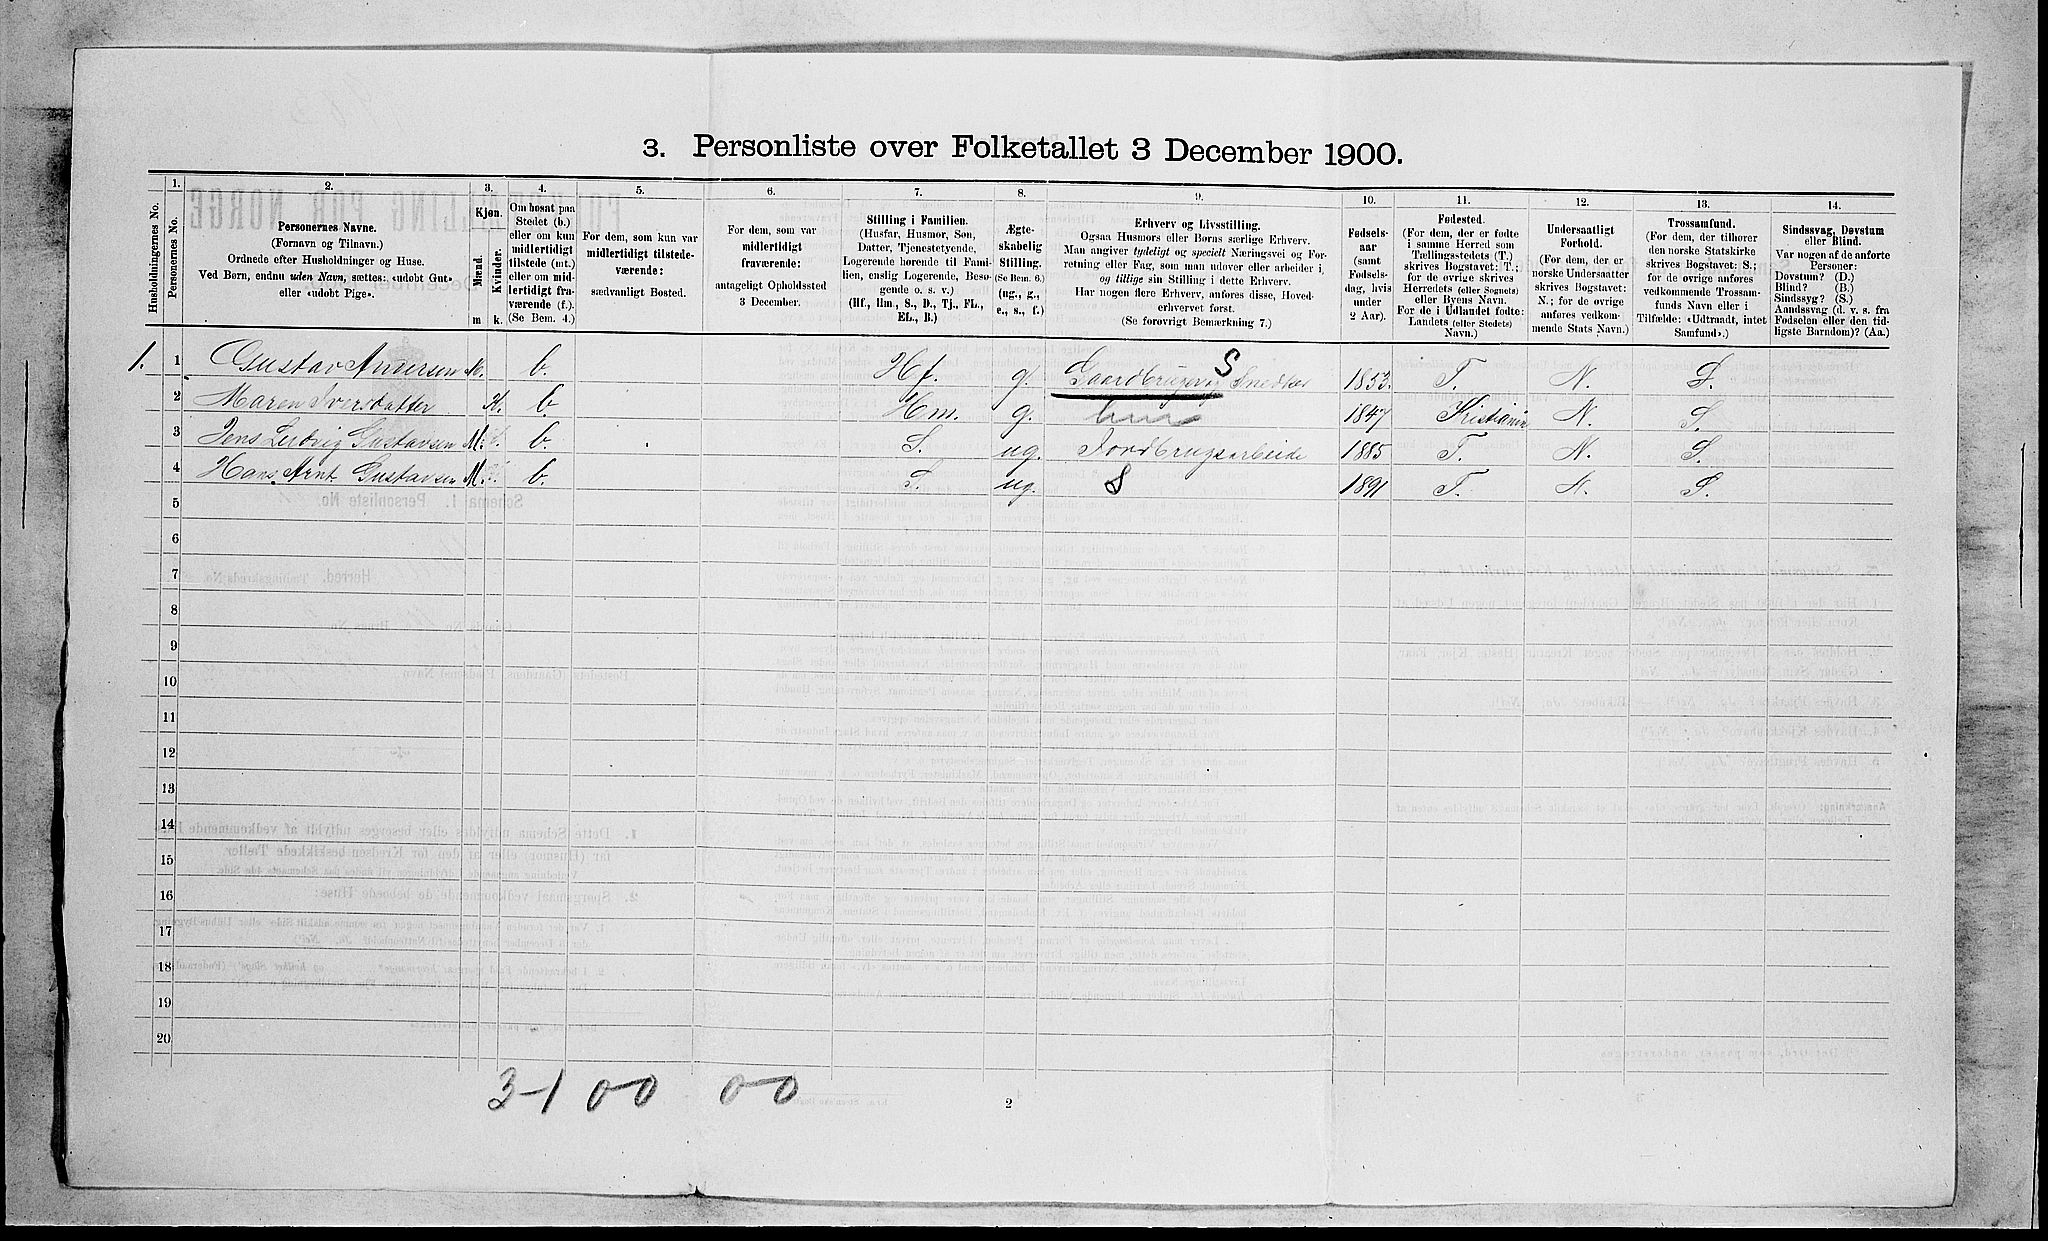 3. Personliste over Folketallet 3 December 1900.
Husholdningernes No.
1.
Personernes No.
2.
Personernes Navne.
(Fornavn og Tilnavn.)
Ordnede efter Husholdninger og Huse.
Ved Børn, endnu uden Navn, sættes: «udøbt Gut»
eller «udøbt Pige».
3.
Kjøn.
Mænd.
Kvinder.
m k.
4.
Om bosat paa
Stedet (b.)
eller om kun
midlertidigt
tilstede (mt.)
eller om mid-
lertidigt fra-
værende (f.).
(Se Bem. 4.)
5.
For dem, som kun var
midlertidigt tilstede-
værende:
sædvanligt Bosted.
6.
For dem, som var
midlertidigt
fraværende:
antageligt Opholdssted
3 December.
7.
Stilling i Familien.
(Husfar, Husmor, Søn,
Datter, Tjenestetyende,
Logerende hørende til Fami-
lien, enslig Logerende, Besø-
gende o. s. v.)
(Hf., Hm., S., D., Tj., FL.,
EL., B.)
8.
Ægte-
skabelig
Stilling.
(Se Bem. 6.)
(ug., g.,
e., s., f.)
9.
Erhverv og Livsstilling.
Ogsaa Husmors eller Børns særlige Erhverv.
Man angiver tydeligt og specielt Næringsvei og For-
retning eller Fag, som man udover eller arbeider i,
og tillige sin Stilling i dette Erhverv.
Har nogen flere Erhverv, anføres disse, Hoved-
erhvervet først.
(Se forøvrigt Bemærkning 7.)
10.
Fødsels-
aar
(samt
Fødsels-
dag, hvis
under
2 Aar).
11.
Fødested.
(For dem, der er fødte
i samme Herred som
Tællingsstedets (T.)
skrives Bogstavet: T.;
for de øvrige skrives
Herredets (eller Sognets)
eller Byens Navn.
For de i Udlandet fødte:
Landets (eller Stedets)
Navn.)
12.
Undersaatligt
Forhold.
(For dem, der er
norske Undersaatter
skrives Bogstavet:
N.; for de øvrige
anføres vedkom-
mende Stats Navn.)
13.
Trossamfund.
(For dem, der tilhører
den norske Statskirke
skrives Bogstavet: S.;
for de øvrige anføres
vedkommende Trossam-
funds Navn eller i
Tilfælde: «Udtraadt, intet
Samfund».)
14.
Sindssvag, Døvstum
eller Blind.
Var nogen af de anførte
Personer:
Døvstum? (D.)
Blind? (B.)
Sindssyg? (S.)
Aandssvag (d. v. s. fra
Fødselen eller den tid-
ligste Barndom)? (Aa.)
1. 1 Gustav Andersen M. b. Hf. g. Gaardbruger og Snedker S 1853. T. N. S.
2 Maren Iversdatter K. b. Hm. g. 1847 Kristiania N. S.
3 Jens Ludvig Gustavsen M. b. S. ug. Jordbrugsarbeide 1885 T. N. S.
4 Hans Arnt Gustavsen M. b. S. ug. S 1891 T. N. S.
5
6
7
8
9
10
11
12
13
14
15
16
17
18
19
20
3-1 00 00
2